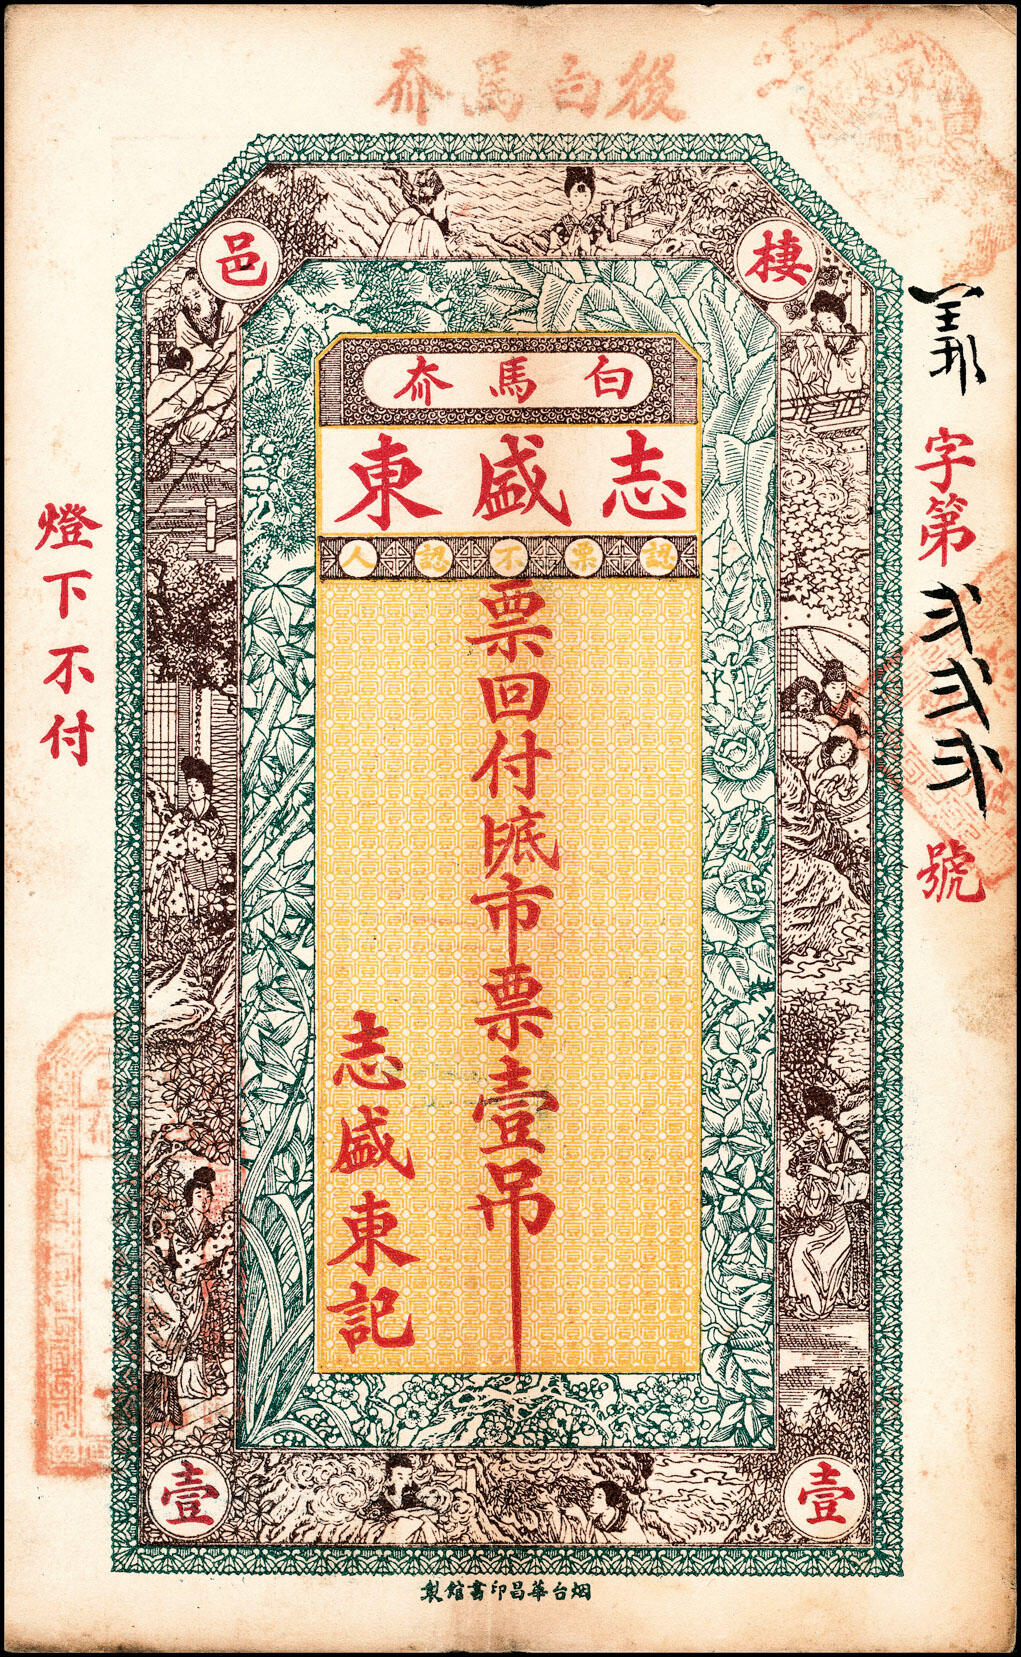 後白馬夼
棲邑
白馬夼
志盛東
認票不認人
票回付底市票壹吊
志盛東記
字第貳貳貳號
燈下不付
壹
壹
烟台華昌印書館製